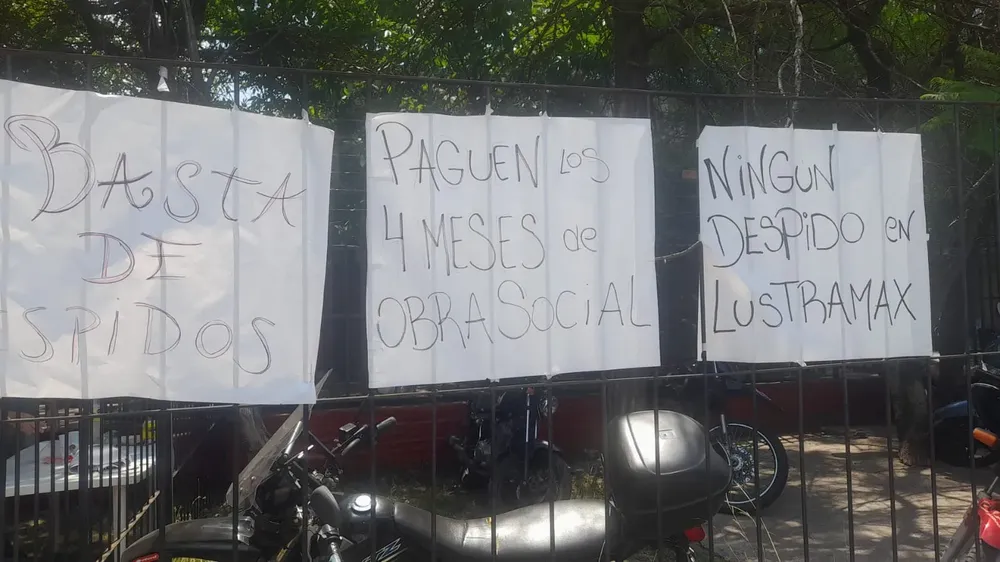 BASTA
DE
SPIDOS
PAGUEN LOS
4 MESES de
OBRA SOCIAL
NINGUN
DESPIDO en
LUSTRAMAX